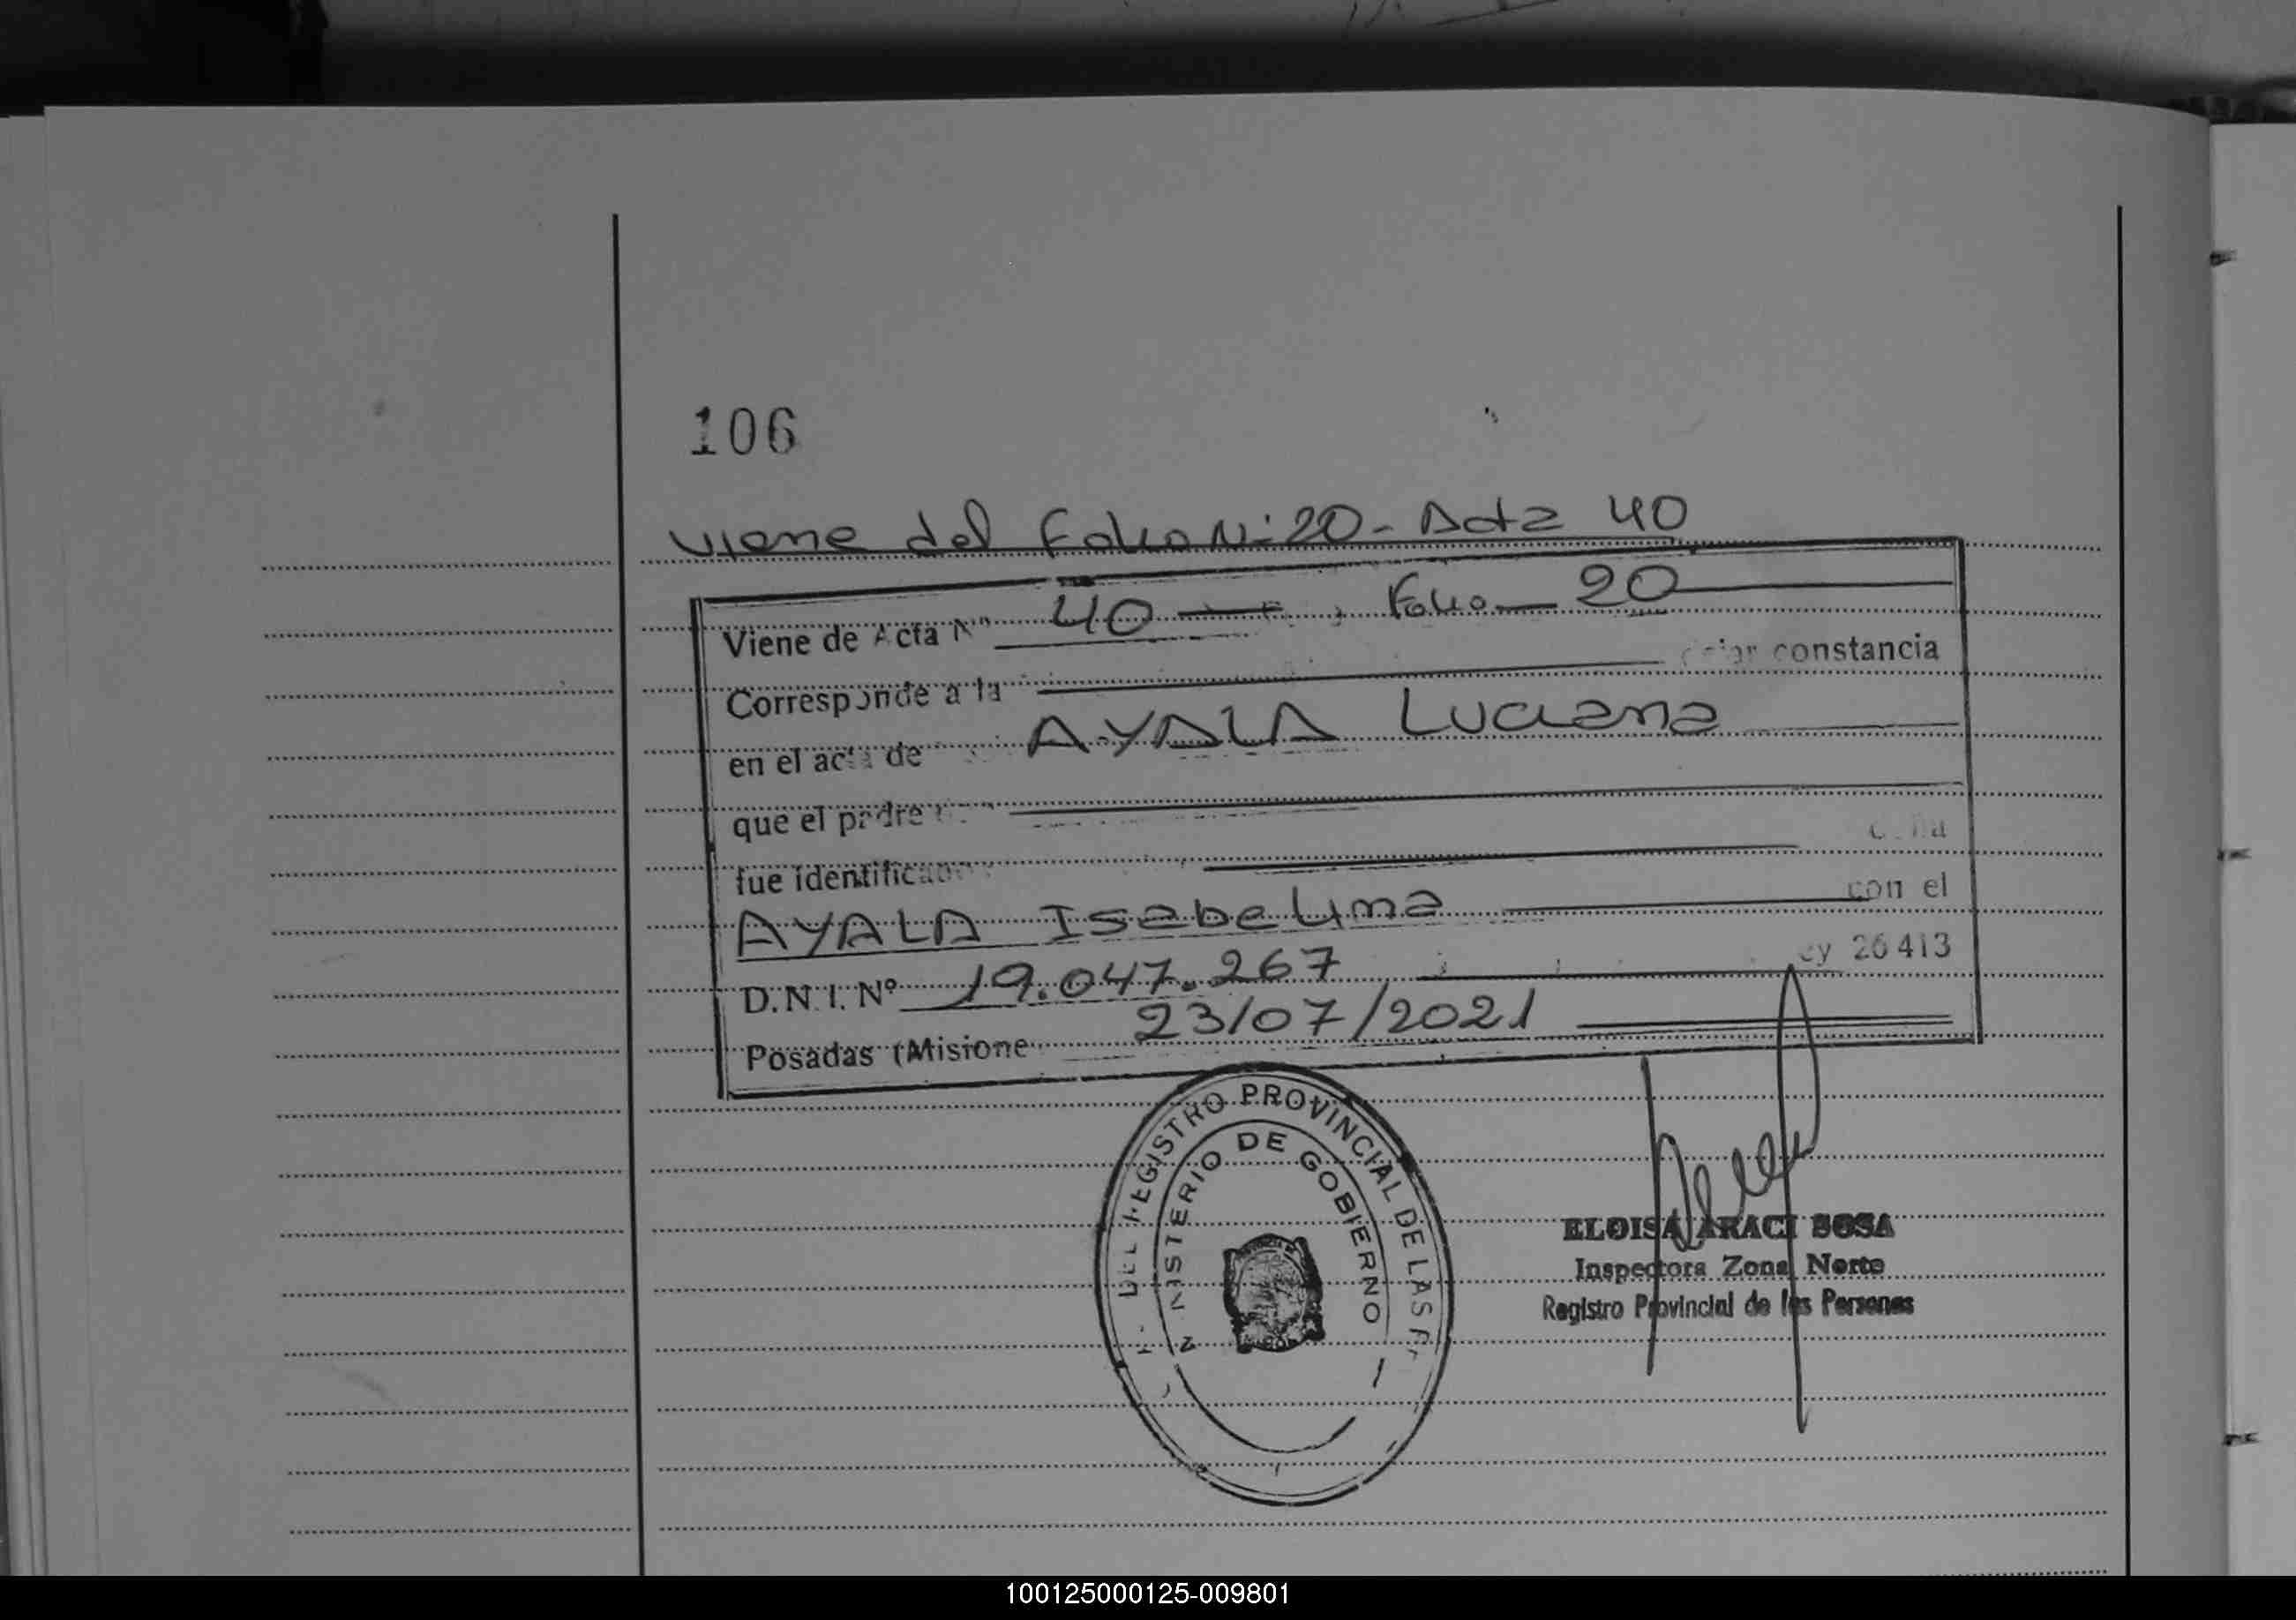 106
Viene del Folio Nº 20 - Acta 40
Viene de Acta Nº 40 Folio 20
Corresponde a la dejar constancia
en el acta de AYALA Luciana
que el padre
fue identificado
AYALA Isabelina con el
D.N.I. Nº 19.047.267 ey 26413
Posadas (Misione 23/07/2021
DEL REGISTRO PROVINCIAL DE LAS
MINISTERIO DE GOBIERNO
ELOISA ARACI SOSA
Inspectora Zona Norte
Registro Provincial de las Personas
100125000125-009801